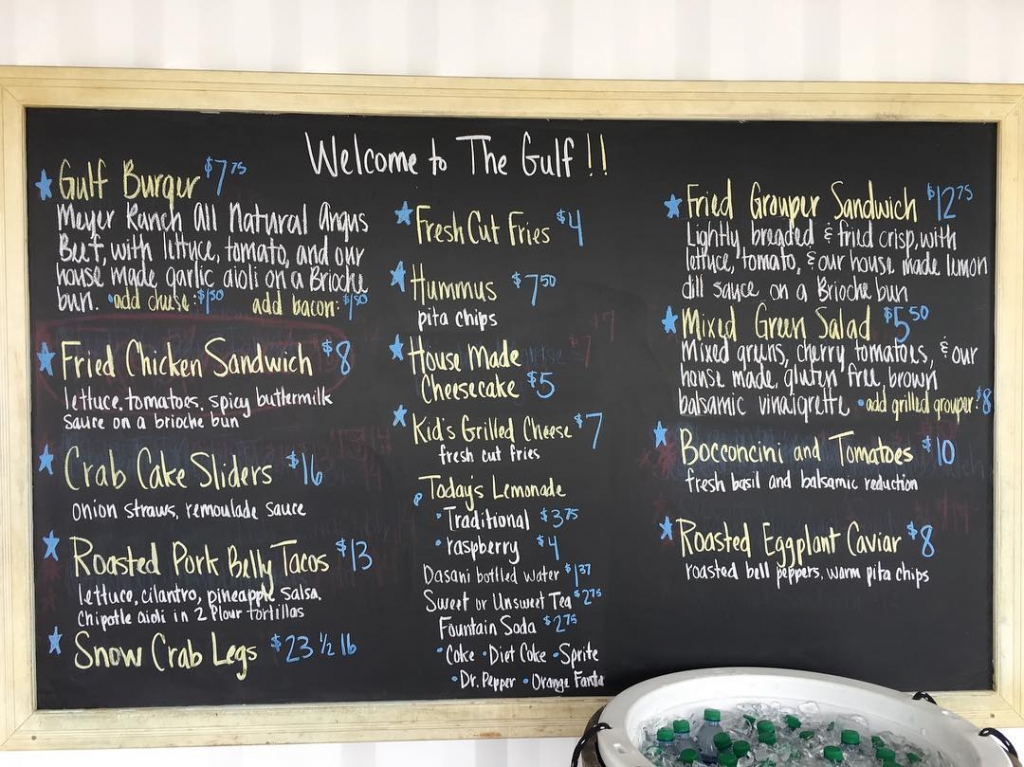 Welcome to The Gulf !!
Gulf Burger $7.75
Meyer Ranch All Natural Angus
Beef, with lettuce, tomato, and our
house made garlic aioli on a Brioche
bun. • add cheese: $1.50 add bacon: $1.50
Fried Chicken Sandwich $8
lettuce, tomatoes, spicy buttermilk
sauce on a brioche bun
Crab Cake Sliders $16
onion straws, remoulade sauce
Roasted Pork Belly Tacos $13
lettuce, cilantro, pineapple salsa,
chipotle aioli in 2 flour tortillas
Snow Crab Legs $23 1/2 lb
Fresh Cut Fries $4
Hummus $7.50
pita chips
House Made
Cheesecake $5
Kid's Grilled Cheese $7
fresh cut fries
Today's Lemonade
• Traditional $3.75
• raspberry $4
Dasani bottled water $1.37
Sweet or Unsweet Tea $2.75
Fountain Soda $2.75
• Coke • Diet Coke • Sprite
• Dr. Pepper • Orange Fanta
Fried Grouper Sandwich $12.75
Lightly breaded & fried crisp, with
lettuce, tomato, & our house made lemon
dill sauce on a Brioche bun
Mixed Green Salad $5.50
Mixed greens, cherry tomatoes, & our
house made, gluten free, brown
balsamic vinaigrette • add grilled grouper: $8
Bocconcini and Tomatoes $10
fresh basil and balsamic reduction
Roasted Eggplant Caviar $8
roasted bell peppers, warm pita chips